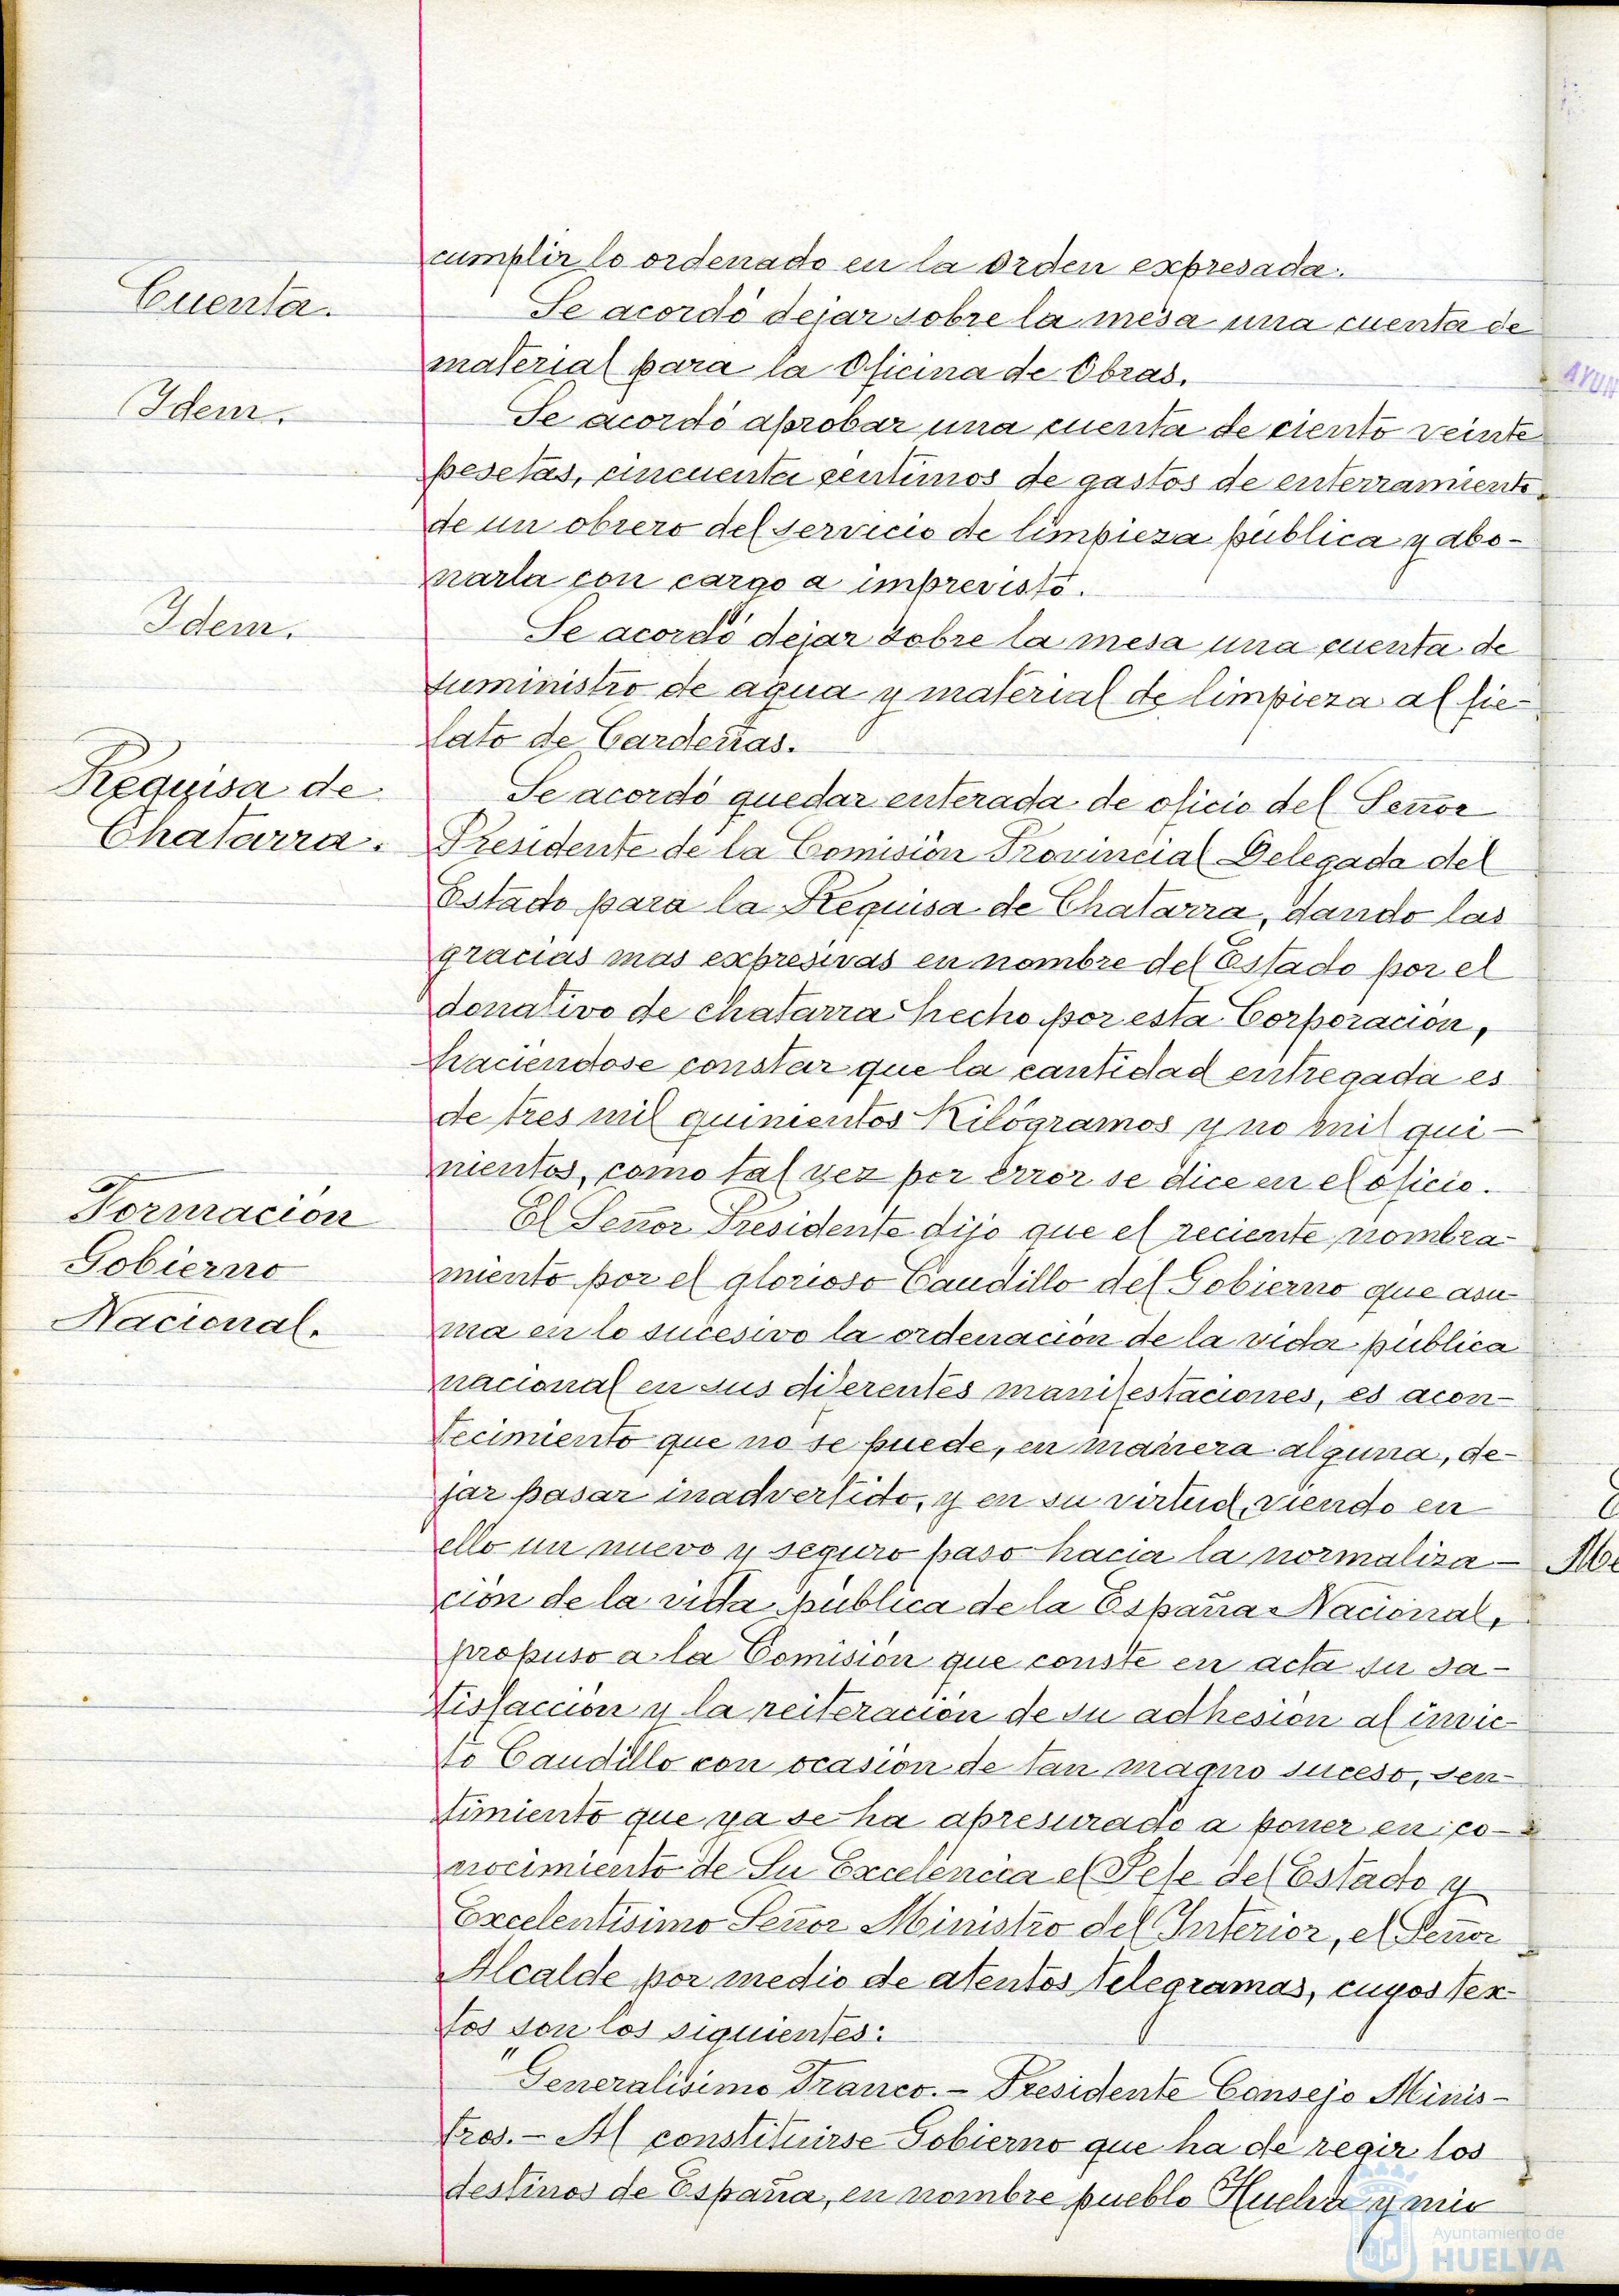 cumplir lo ordenado en la orden expresada.
Cuenta.
Se acordó dejar sobre la mesa una cuenta de
material para la Oficina de Obras.
Idem.
Se acordó aprobar una cuenta de ciento veinte
pesetas, cincuenta centimos de gastos de enterramiento
de un obrero del servicio de limpieza pública y abo-
narla con cargo a imprevisto.
Idem.
Se acordó dejar sobre la mesa una cuenta de
suministro de agua y material de limpieza al fie-
lato de Cardeñas.
Requisa de
Chatarra.
Se acordó quedar enterada de oficio del Señor
Presidente de la Comisión Provincial Delegada del
Estado para la Requisa de Chatarra, dando las
gracias mas expresivas en nombre del Estado por el
donativo de chatarra hecho por esta Corporación,
haciendose constar que la cantidad entregada es
de tres mil quinientos Kilógramos y no mil qui-
nientos, como tal vez por error se dice en el oficio.
Formación
Gobierno
Nacional.
El Señor Presidente dijo que el reciente nombra-
miento por el glorioso Caudillo del Gobierno que asu
ma en lo sucesivo la ordenación de la vida pública
nacional en sus diferentes manifestaciones, es acon-
tecimiento que no se puede, en manera alguna, de-
jar pasar inadvertido, y en su virtud, viendo en
ello un nuevo y seguro paso hacia la normaliza-
ción de la vida pública de la España Nacional,
propuso a la Comisión que conste en acta su sa-
tisfacción y la reiteración de su adhesión al invic-
to Caudillo con ocasión de tan magno suceso, sen-
timiento que ya se ha apresurado a poner en co-
nocimiento de Su Excelencia el Jefe del Estado y
Excelentísimo Señor Ministro del Interior, el Señor
Alcalde por medio de atentos telegramas, cuyos tex-
tos son los siguientes:
"Generalísimo Franco.- Presidente Consejo Minis-
tros.- Al constituirse Gobierno que ha de regir los
destinos de España, en nombre pueblo Huelva y mio
AYUN
Ayuntamiento de
HUELVA